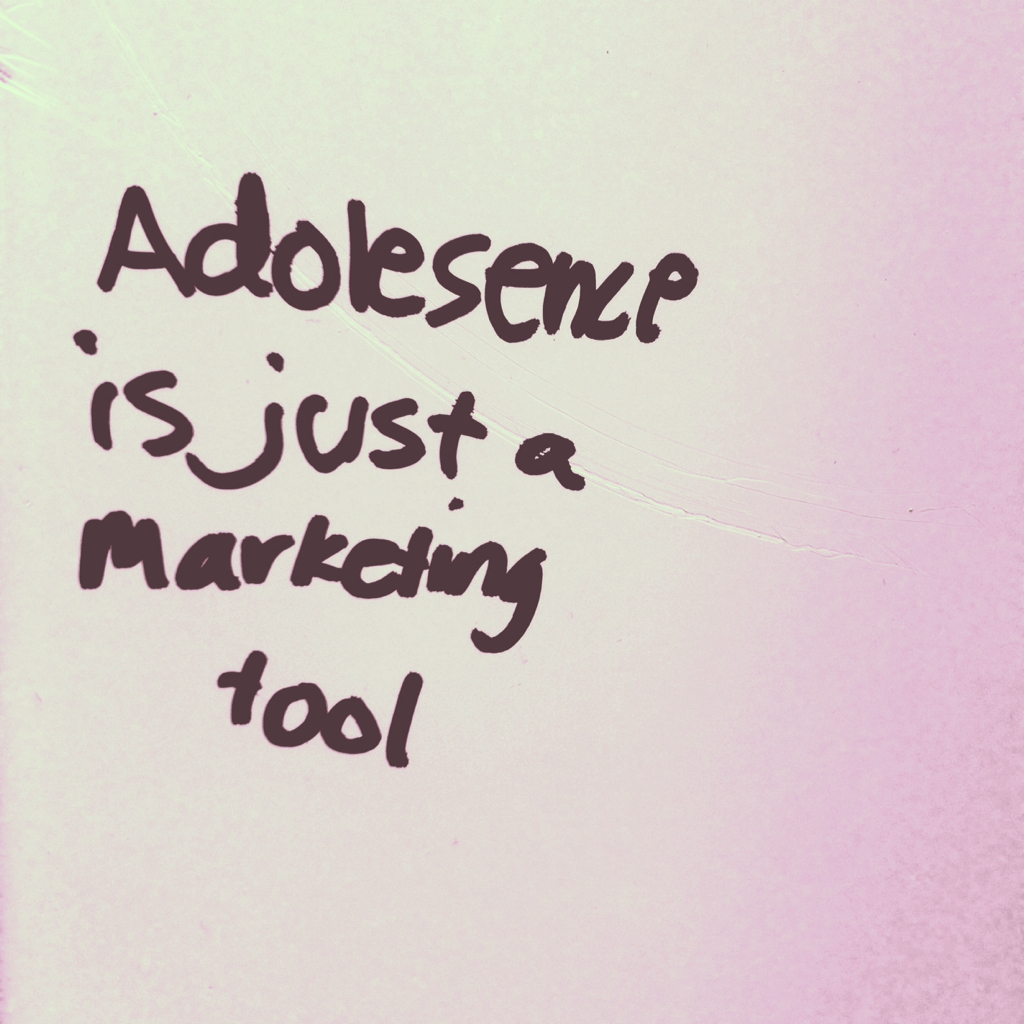 Adolesence
is just a
marketing
tool